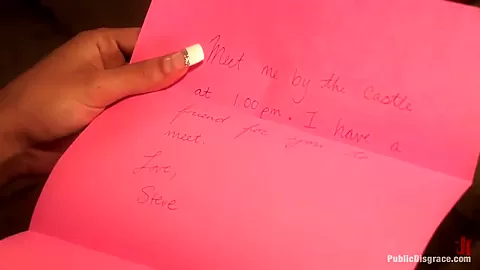 Meet me by the Castle
at 1:00 pm. I have a
friend for you to
meet.
Love,
Steve
PublicDisgrace.com